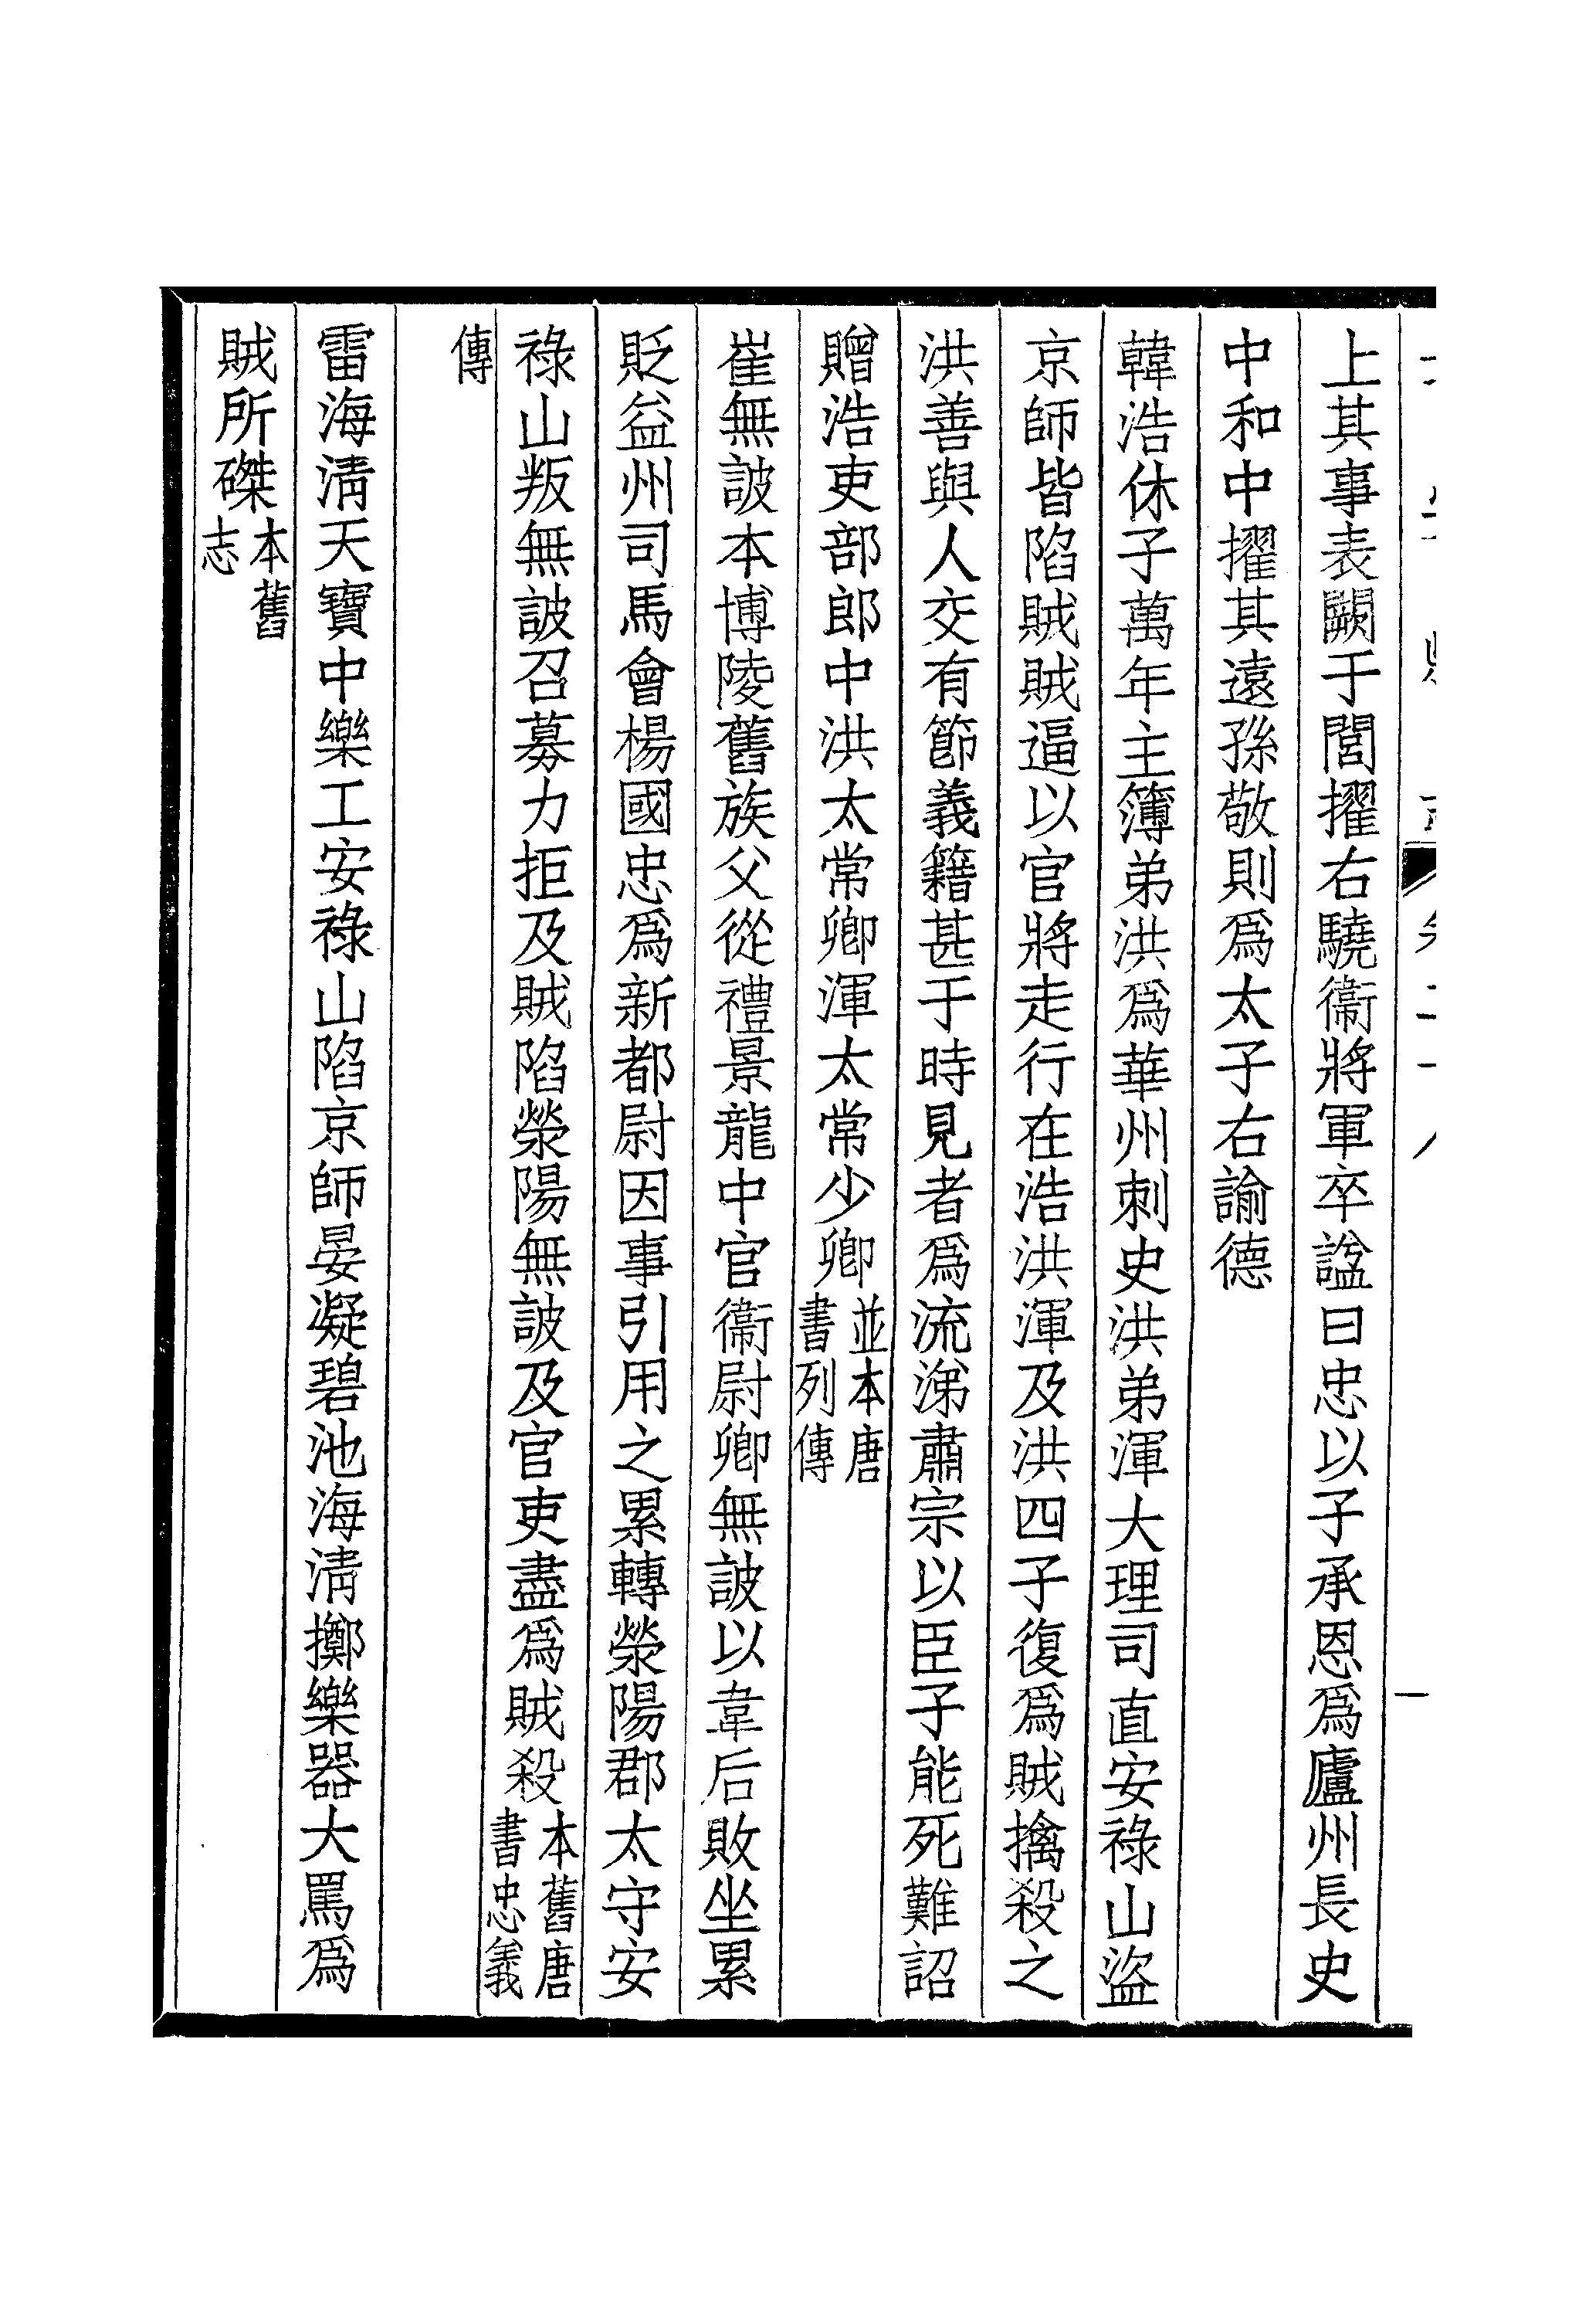 上其事表闕于閭擢右驍衞將軍卒諡曰忠以子承恩爲廬州長史
中和中擢其遠孫敬則爲太子右諭德
韓浩休子萬年主簿弟洪爲華州刺史洪弟渾大理司直安祿山盜
京師皆陷賊賊逼以官將走行在浩洪渾及洪四子復爲賊擒殺之
洪善與人交有節義籍甚于時見者爲流涕肅宗以臣子能死難詔
贈浩吏部郎中洪太常卿渾太常少卿並本唐書列傳
崔無詖本博陵舊族父從禮景龍中官衞尉卿無詖以韋后敗坐累
貶益州司馬會楊國忠爲新都尉因事引用之累轉滎陽郡太守安
祿山叛無詖召募力拒及賊陷滎陽無詖及官吏盡爲賊殺本舊唐書忠義
傳
雷海淸天寶中樂工安祿山陷京師宴凝碧池海淸擲樂器大罵爲
賊所磔本舊志